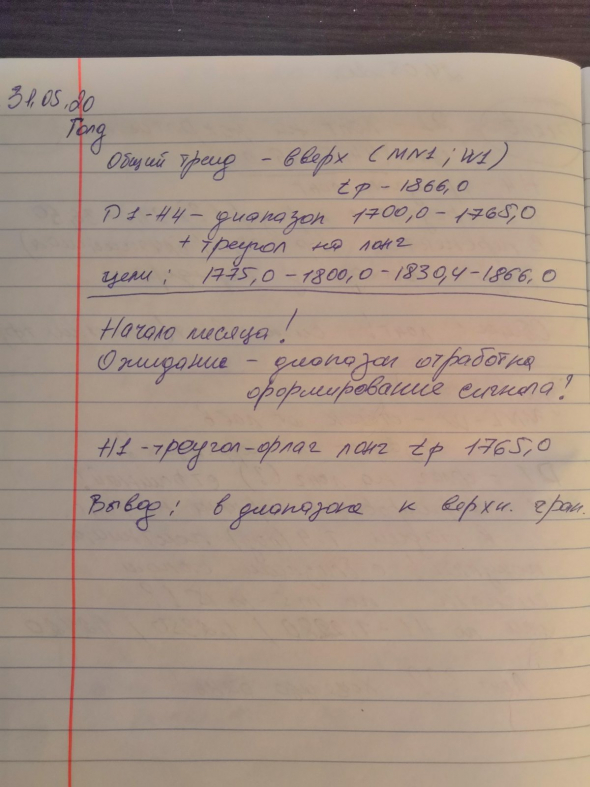 31.05.20
Голд
Общий тренд - вверх (MN1; W1)
tp - 1866,0
D1-H4 - диапазон 1700,0 - 1765,0
+ треугол на лонг
цели: 1775,0 - 1800,0 - 1830,4 - 1866,0
Начало месяца!
Ожидание - диапазон отработка
формирование сигнала!
H1 - треугол - флаг лонг tp 1765,0
Вывод: в диапазоне к верхн. гран.